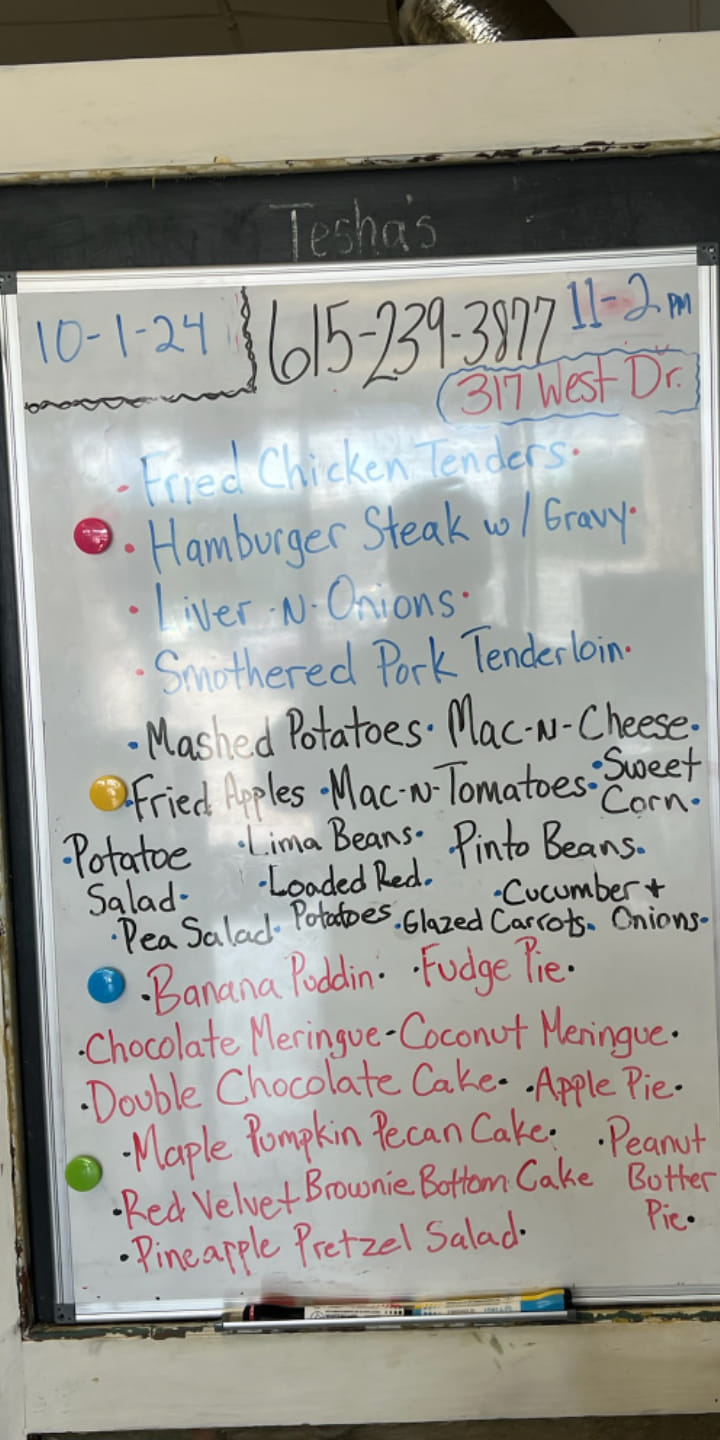 Tesha's
10-1-24 615-239-3877 11-2 PM
317 West Dr.
• Fried Chicken Tenders •
• Hamburger Steak w/ Gravy •
• Liver -N- Onions •
• Smothered Pork Tenderloin •
• Mashed Potatoes • Mac-N-Cheese •
• Fried Apples • Mac-N-Tomatoes • • Sweet Corn •
• Potatoe Salad • • Lima Beans • • Pinto Beans •
• Loaded Red Potatoes • Cucumber + Onions •
• Pea Salad • • Glazed Carrots •
• Banana Puddin • • Fudge Pie •
• Chocolate Meringue - Coconut Meringue •
• Double Chocolate Cake • • Apple Pie •
• Maple Pumpkin Pecan Cake • • Peanut Butter Pie •
• Red Velvet Brownie Bottom Cake
• Pineapple Pretzel Salad •